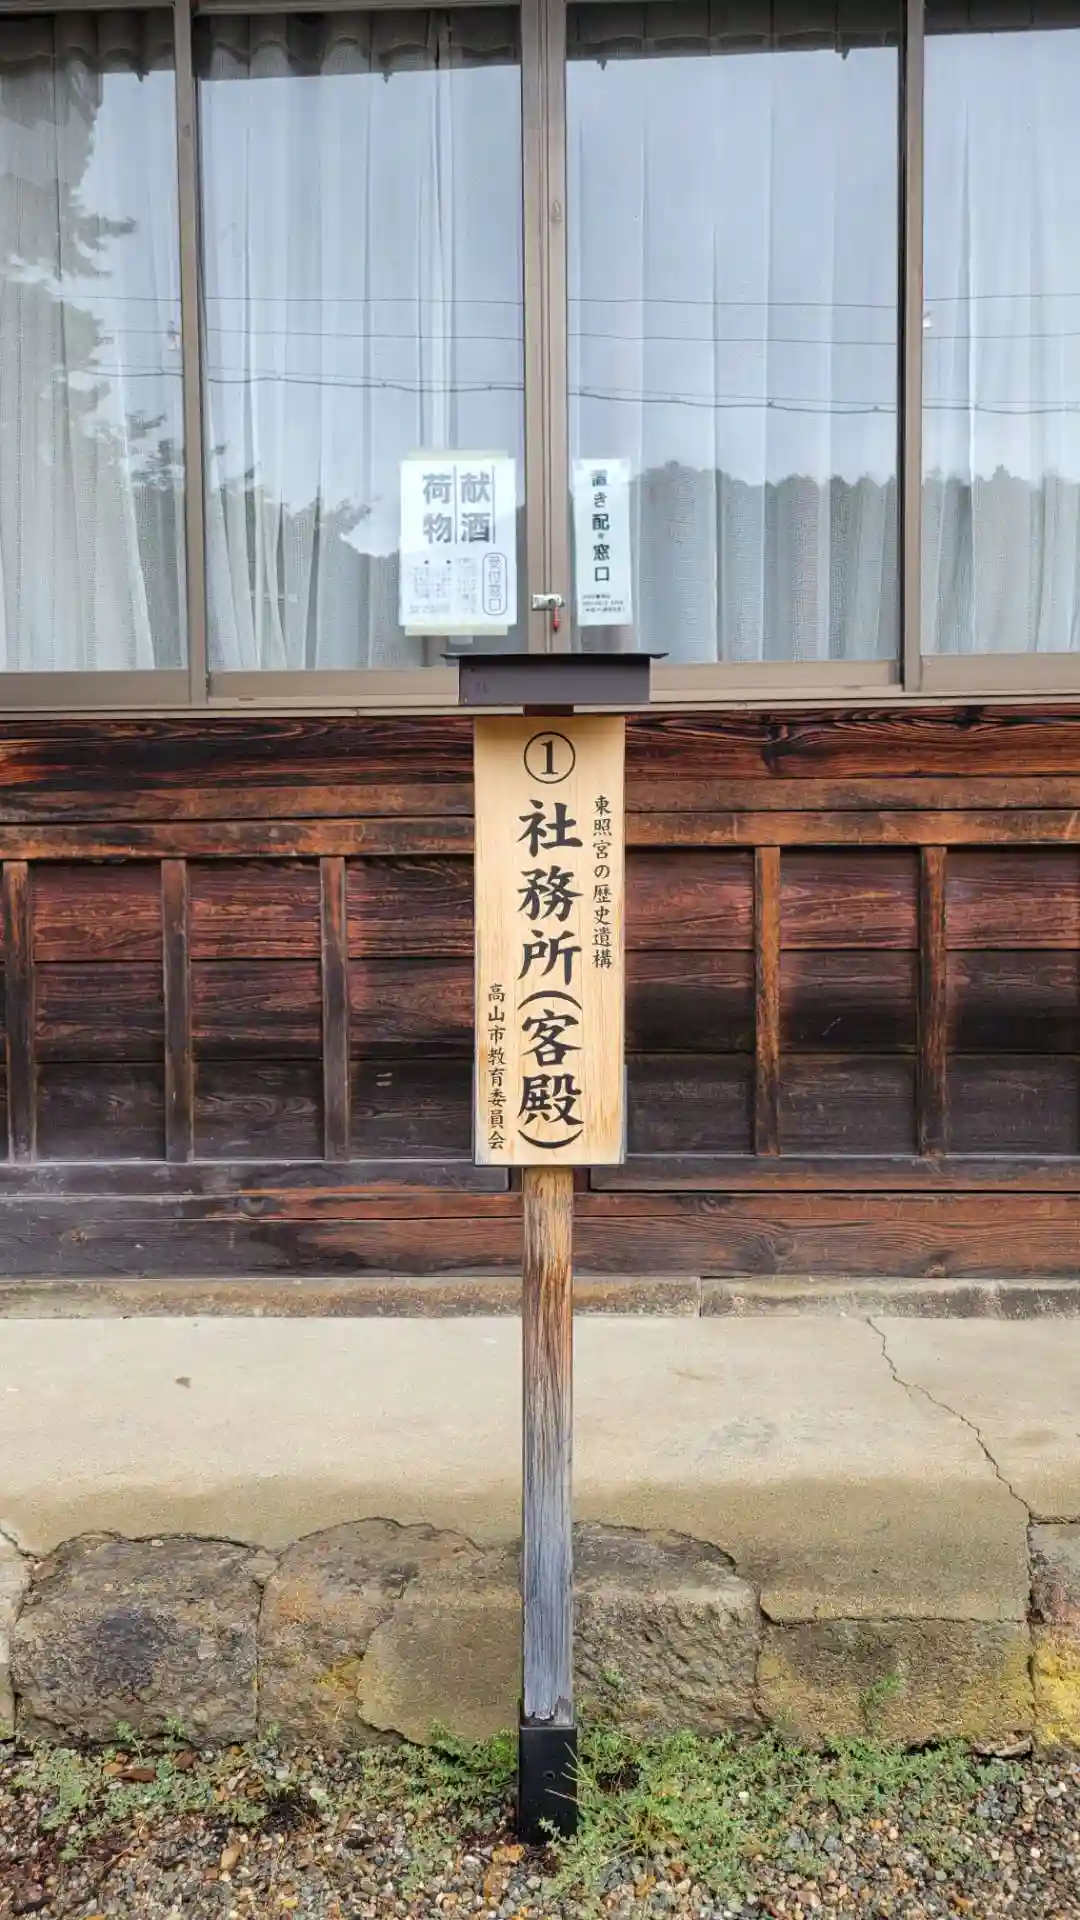 献酒
荷物
受付窓口
置き配窓口
①
東照宮の歴史遺構
社務所(客殿)
高山市教育委員会